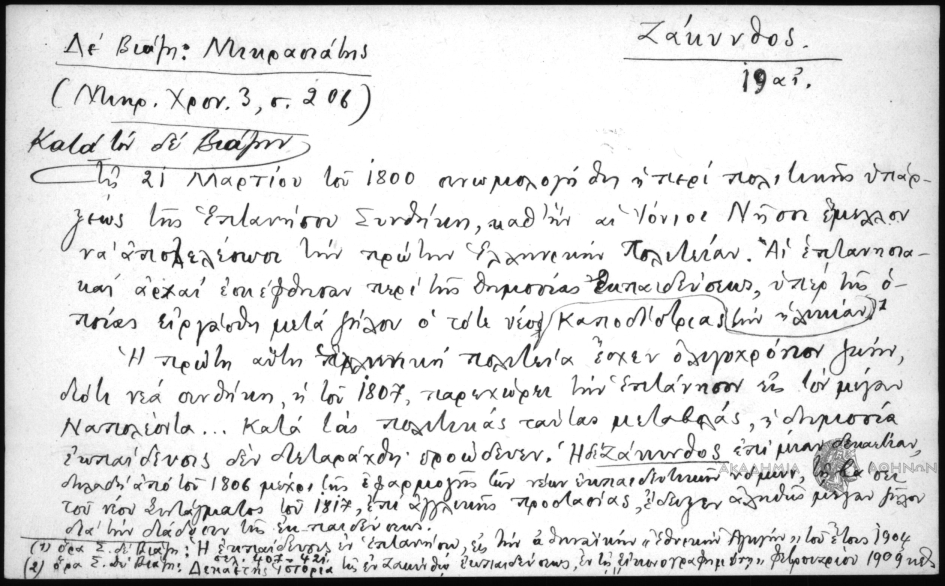 Δέ Βιάζη: Μικρασιάτης
Ζάκυνθος.
19 αἰ.
(Μικρ. Χρον. 3, σ. 206)
Κατά τόν δέ Βιάζην
τῇ 21 Μαρτίου τοῦ 1800 συνωμολογήθη ἡ περί πολιτικῆς ὑπάρ-
ξεως τῆς Ἑπτανήσου Συνθήκη, καθ' ἥν αἱ Ἰόνιοι Νῆσοι ἔμελλον
νά ἀποτελέσωσι τήν πρώτην Ἑλληνικήν Πολιτείαν. Αἱ ἑπτανησια-
καί ἀρχαί ἐσκέφθησαν περί τῆς δημοσίας ἐκπαιδεύσεως, ὑπέρ τῆς ὁ-
ποίας εἰργάσθη μετά ζήλου ὁ τότε νέος τήν ἡλικίαν Καποδίστριας 1
Ἡ πρώτη αὕτη ἑλληνική πολιτεία ἔσχεν ὀλιγοχρόνιον ζωήν,
διότι νέα συνθήκη, ἡ τοῦ 1807, παρεχώρει τήν Ἑπτάνησον εἰς τόν μέγαν
Ναπολέοντα... Κατά τάς πολιτικάς ταύτας μεταβολάς, ἡ δημοσία
ἐκπαίδευσις δέν διεταράχθη· προώδευεν. Ἡ δέ Ζάκυνθος ἐπί μίαν δεκαετίαν,
δηλαδή ἀπό τοῦ 1806 μέχρι τῆς ἐφαρμογῆς τῶν νέων ἐκπαιδευτικῶν νόμων,
τοῦ νέου Συντάγματος τοῦ 1817, ἐπί ἀγγλικῆς προστασίας, ἔδειξεν ἀληθῶς μέγαν ζῆλον
διά τήν διάδοσιν τῆς ἐκπαιδεύσεως.
(1) ὅρα Σ. δέ Βιάζη: Ἡ ἐκπαίδευσις ἐν Ἑπτανήσῳ, εἰς τήν ἀθηναϊκήν "Ἐθνικήν Ἀγωγήν" τοῦ ἔτους 1904
σελ. 407-421.
(2) ὅρα Σ. δέ Βιάζη: Δεκαετής ἱστορία τῆς ἐν Ζακύνθῳ ἐκπαιδεύσεως, ἐν τῇ εἰκονογραφημένῃ Φεβρουαρίου 1909
ΑΚΑΔΗΜΙΑ ΑΘΗΝΩΝ